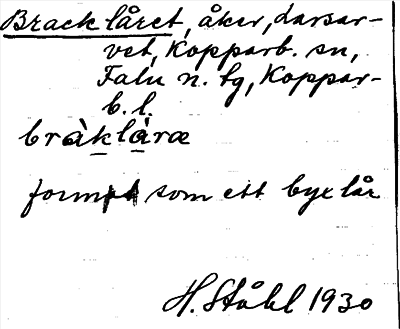 Bracklåret, åker, darsar-
vet, Kopparb. sn,
Falu n. tg, Koppar-
b. l.
bràklàræ
format som ett byxlår
H. Ståhl 1930